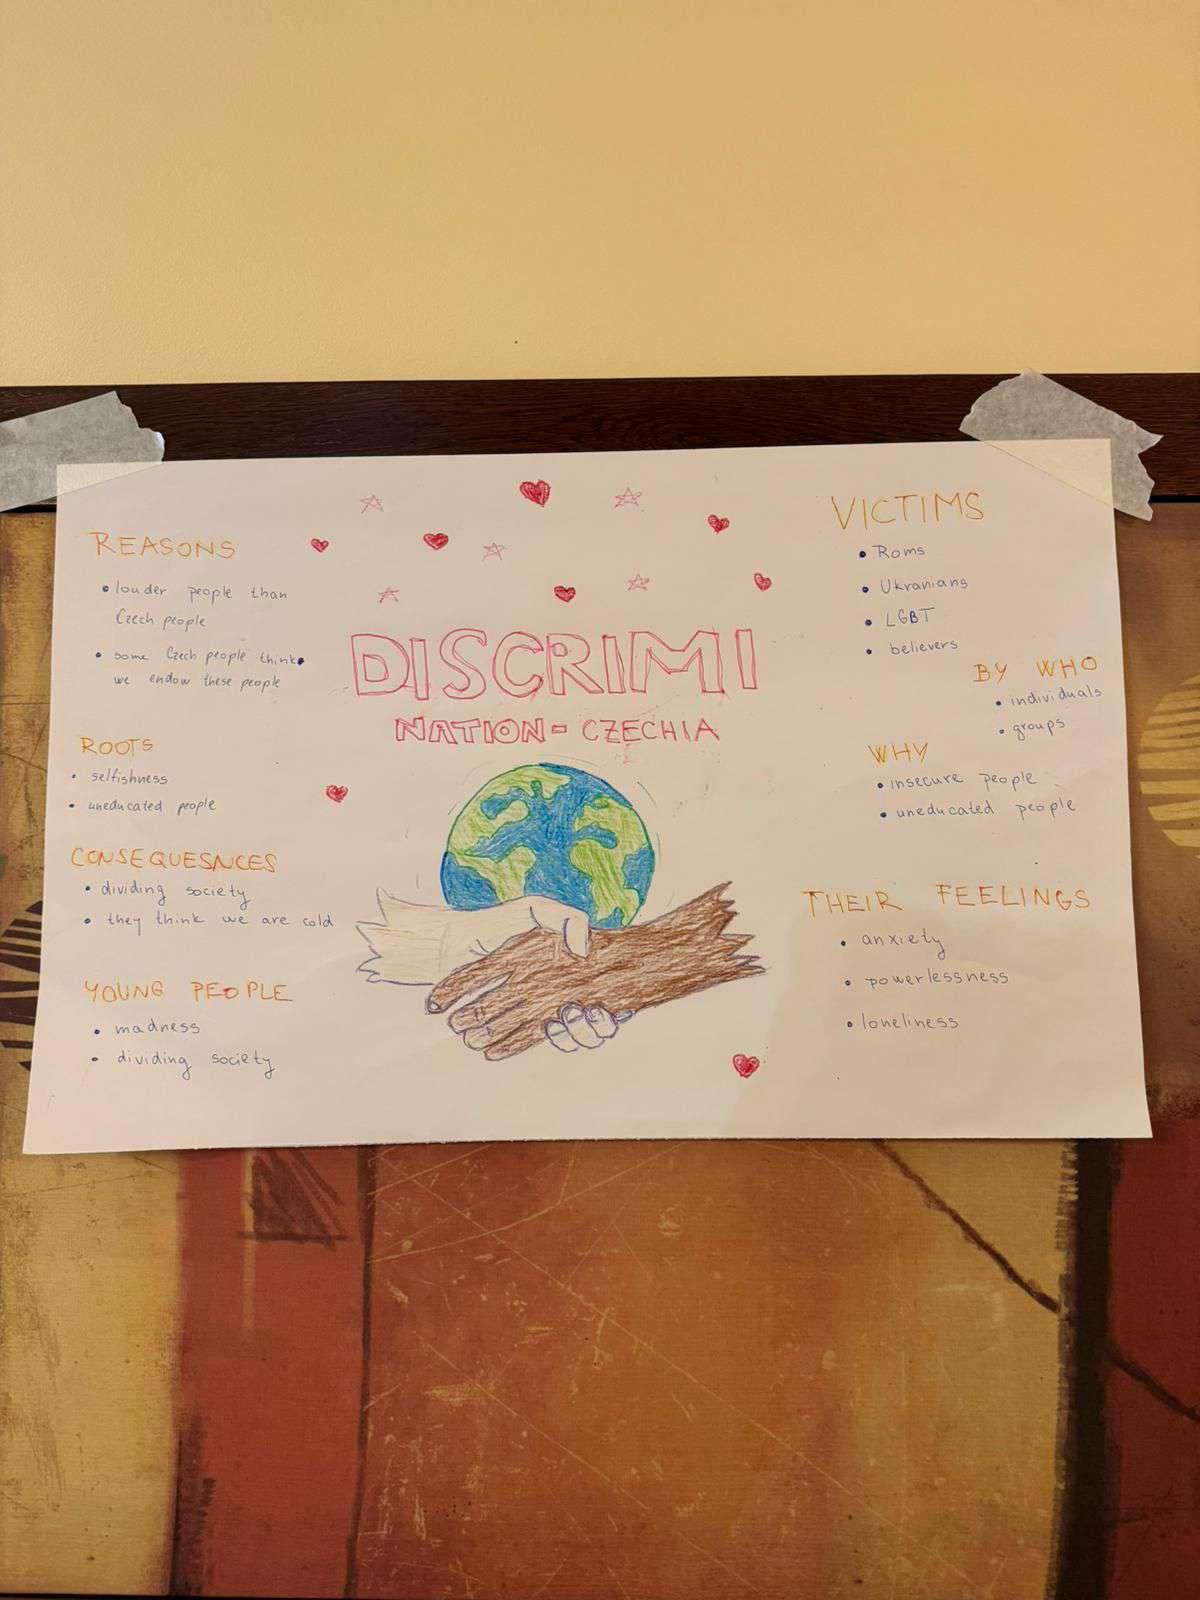 REASONS
• louder people than
Czech people
• some Czech people think
we endow these people
ROOTS
• selfishness
• uneducated people
CONSEQUESNCES
• dividing society
• they think we are cold
YOUNG PEOPLE
• madness
• dividing society
DISCRIMI
NATION - CZECHIA
VICTIMS
• Roms
• Ukranians
• LGBT
• believers
BY WHO
• individuals
• groups
WHY
• insecure people
• uneducated people
THEIR FEELINGS
• anxiety
• powerlessness
• loneliness